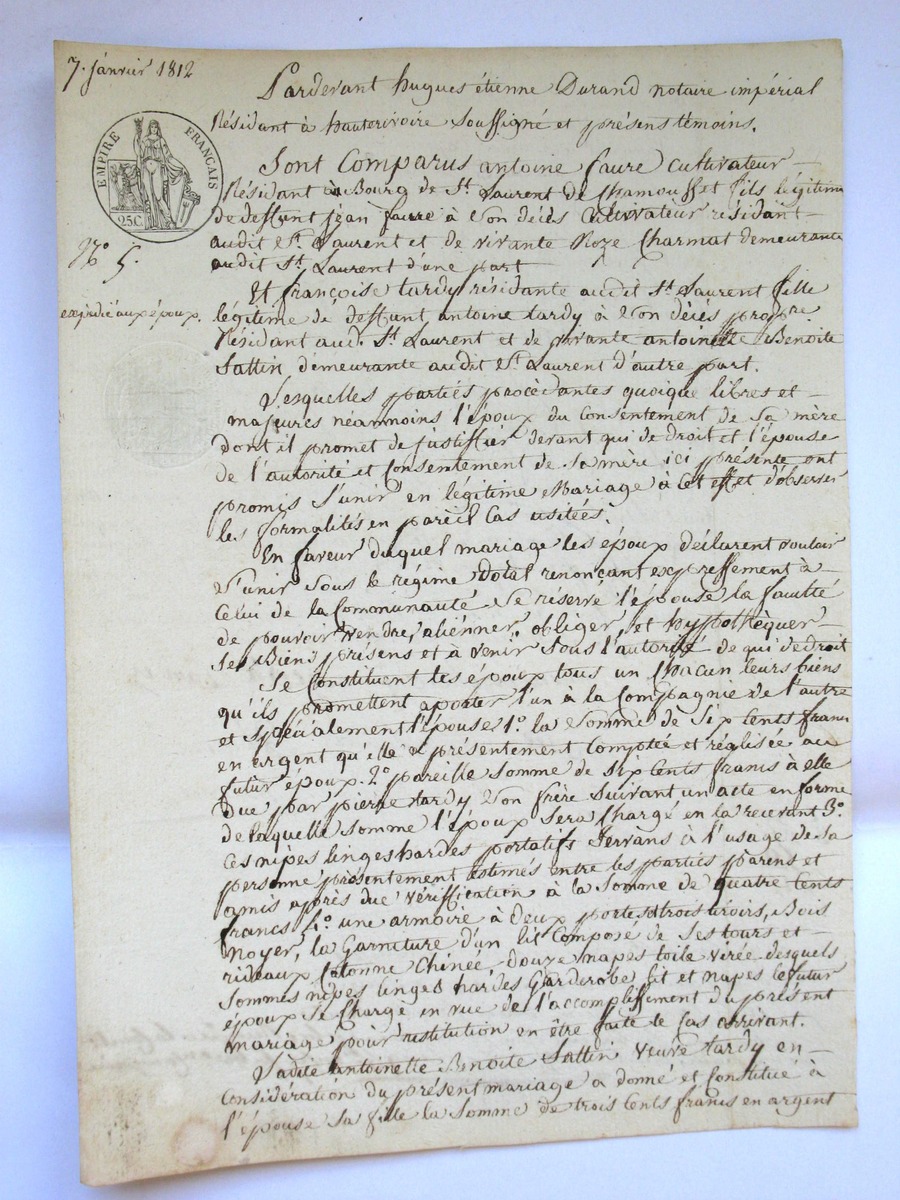 7. janvier 1812
Pardevant hugues étienne Durand notaire impérial
Résidant à hauterivoire soussigné et présens témoins.
EMPIRE FRANÇAIS
25C
Sont Comparus antoine faure Cultivateur
Résidant à Bourg de St. Laurent de Chamousset fils légitime
de deffunt jean faure à son décès Cultivateur résidant
audit St. Laurent et de vivante Roze Charmat demeurante
audit St. Laurent d'une part
No. 5.
Et françoise tardy résidante audit St. Laurent fille
expédié aux époux.
légitime de deffunt antoine tardy à son décès propre.
Résidant aud. St. Laurent et de vivante antoinette Benoite
Sattin, demeurante audit St. Laurent d'autre part.
Lesquelles parties procédantes quoique libres et
majeures néammoins l'époux du Consentement de sa mère
dont il promet de justiffier devant qui de droit et l'épouse
de l'autorité et Consentement de sa mère ici présente ont
promis s'unir en légitime Mariage à Cet effet d'observer
les formalités en pareil Cas usitées.
En faveur duquel mariage les époux déclarent vouloir
s'unir sous le régime Dotal renonçant expressement à
Celui de la Communauté se réserve l'épouse la faculté
de pouvoir vendre, aliènner, obliger, et hypothèquer
ses Biens présens et à venir sous l'autorité de qui de droit
Se Constituent les époux tous un Chacun leurs biens
qu'ils promettent aporter l'un à la Compagnie de l'autre
et spécialement l'épouse 1o. la somme de six Cents francs
en argent qu'elle a présentement Comptée et réalisée au
futur époux. 2o. pareille somme de six cents francs à elle
due par pierre tardy son frère suivant un acte en forme
de laquelle somme l'époux sera Chargé en la recevant 3o.
Ces nipes linges hardes portatifs servans à l'usage de sa
personne présentement estimés entre les parties parens et
amis après due vériffication à la somme de quatre Cents
francs 4o. une armoire à deux portes trois tiroirs, Bois
Noyer, la Garniture d'un lit Composé de ses tours et
rideaux Cotonne Chinée douze napes toile virée desquels
sommes nipes linges hardes Garderobe lit et napes le futur
époux se Charge en vue de l'accomplissement du présent
mariage pour restitution en être faite le Cas arrivant.
Ladite antoinette Benoite Sattin veuve tardy en
Considération du présent mariage a donné et Constitué à
l'épouse sa fille la somme de trois Cents francs en argent